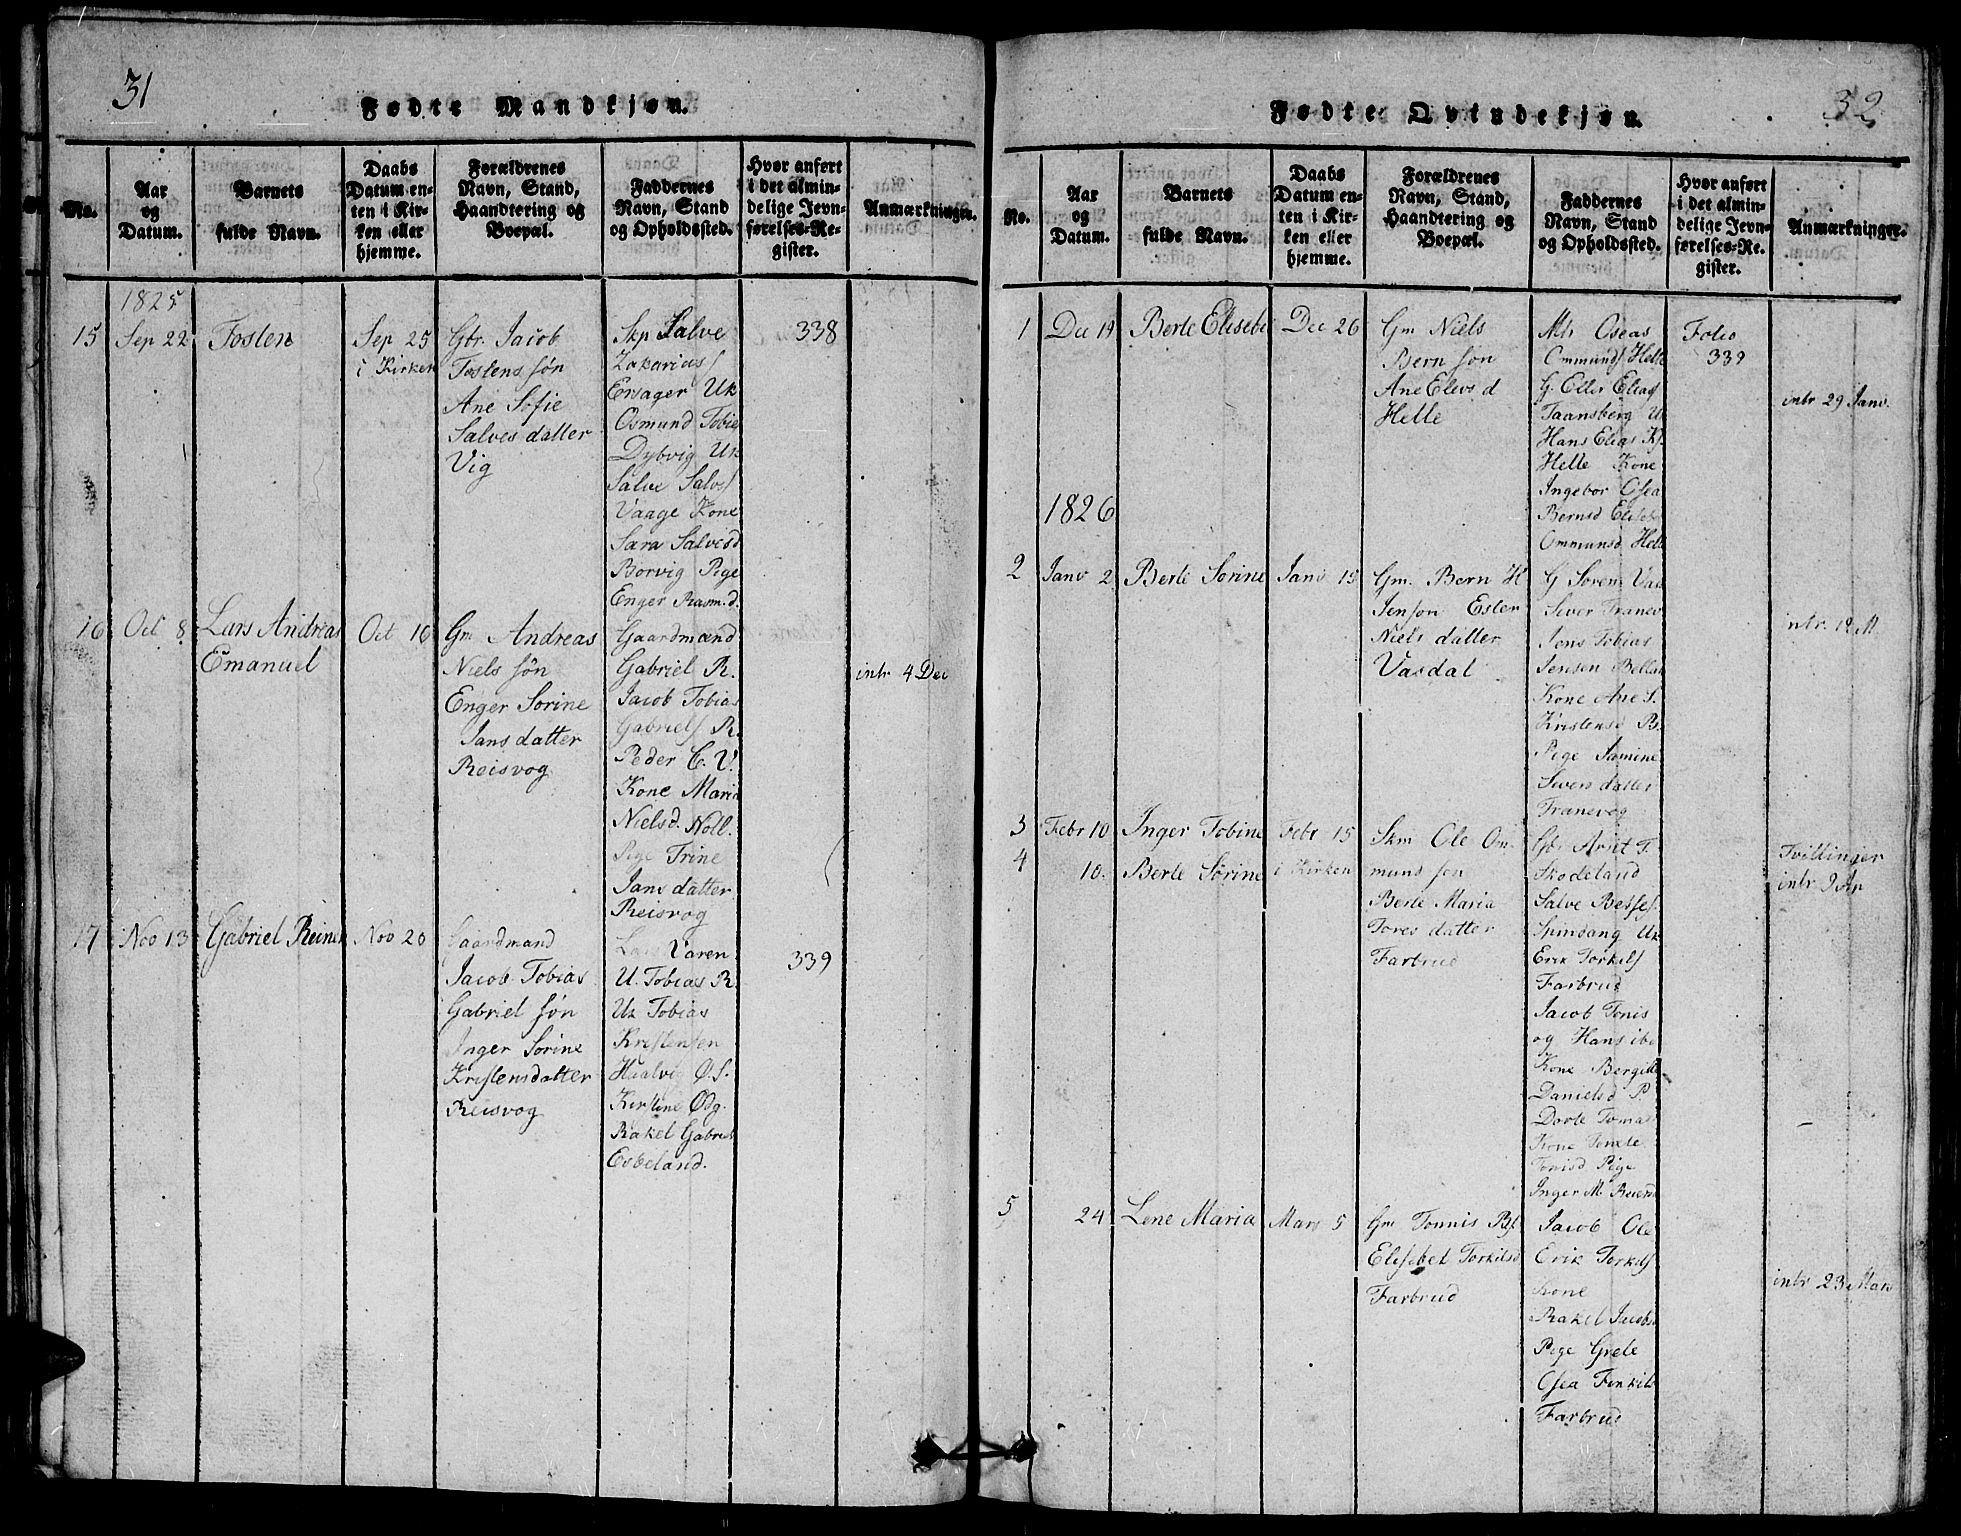 31
Fødte Mandkjøn.
No.
Aar og Datum.
Barnets fulde Navn.
Daabs Datum enten i Kirken eller hjemme.
Forældrenes Navn, Stand, Haandtering og Boepæl.
Faddernes Navn, Stand og Opholdssted.
Hvor anført i det almindelige Jevnførelses-Register.
Anmærkninger.
1825
15
Sep 22
Tosten
Sep 25
i Kirken
Gbr. Jacob
Tostens søn
Ane Sofie
Salves datter
Vig
Skp Salve
Zakarias
Ersager Uk
Osmund Tobia
Dybvig Uk
Salve Salvs
Vaage Kone
Sara Salvesd
Borvig Pige
Enger Rasm.d.
338
16
Oct 8
Lars Andreas
Emanuel
Oct 16
Gm Andreas
Niels søn
Enger Sorine
Jans datter
Reisvog
Gaardmænd
Gabriel R.
Jacob Tobias
Gabriels R.
Peder C. V.
Kone Maria
Nielsd. Noll.
Pige Trine
Jans datter
Reisvog
intr 4 Dec
17
Nov 13
Gabriel Reiner
Nov 20
Gaardmand
Jacob Tobias
Gabriel søn
Inger Sorine
Kristensdatter
Reisvog
Varen
U. Tobias R
Uk Tobias
Kristensen
Haalvig Ø.S.
Kirstine Ødg.
Rakel Gabriels
Esbeland.
339
32
Fødte Qvindekjøn.
No.
Aar og Datum.
Barnets fulde Navn.
Daabs Datum enten i Kirken eller hjemme.
Forældrenes Navn, Stand, Haandtering og Boepæl.
Faddernes Navn, Stand og Opholdssted.
Hvor anført i det almindelige Jevnførelses-Register.
Anmærkninger.
1
Dec 19
Berte Elisebe
Dec 26
Gm Niels
Bern søn
Ane Elevs d
Helle
Oseas
Ommunds Helle
G. Elias
Taansberg U
Hans Elias
Helle Kone
Ingebor Osea
Bernsd Elisebe
Ommunsd Helle
Folio
339
intr 29 Janv.
1826
2
Janv 2
Berte Sorine
Janv 15
Gm. Bern H
Jenson Ester
Niels datter
Vasdal
G Soren Vas
Siver Tranev
Jens Tobias
Jensen Bellan
Kone Ane S.
Kristensd
Pige Samine
Sivers datter
Tranevog
intr. 12 M
3
Febr 10
Inger Tobine
Febr 15
4
10.
Berte Sorine
i Kirken
Skm Ole Om-
mund søn
Berte Maria
Tores datter
Farbrud
Gbr Arnt T.
Skodeland
Salve Besses.
Spindang Uk
Erik Torkils
Farbrud
Jacob Tonis
og Hans ibi
Kone Bergitte
Danielsd P
Dorte Tomas
Kone Tomete
Tonisd Pige
Inger M. Reiers
Tvillinger
intr 9 Ap
5
24
Lene Maria
Mars 5
Gm Tonnis
Elisebet Torkilsd
Farbrud
Jacob Ole
Erik Torkils
Kone
Rakel Jacobs
Pige Grete
Osea
Farbrud
intr 23 Mars